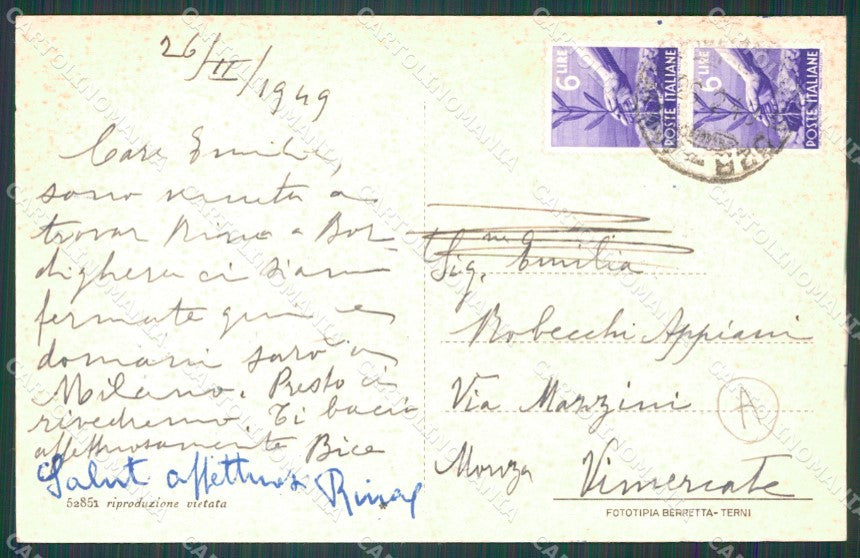 26/II/1949
Cara Emilia,
sono venuta a
trovar Rina a Bor-
dighera ci siamo
fermate qui e
domani sarò a
Milano. Presto ci
rivedremo. Ti bacio
affettuosamente Bice
Saluti affettuosi Rina
52851 riproduzione vietata
6 LIRE
POSTE ITALIANE
6 LIRE
POSTE ITALIANE
Sig.na Emilia
Robecchi Appiani
Via Manzini
A
Monza Vimercate
FOTOTIPIA BERRETTA - TERNI
CARTOLINOMANIA